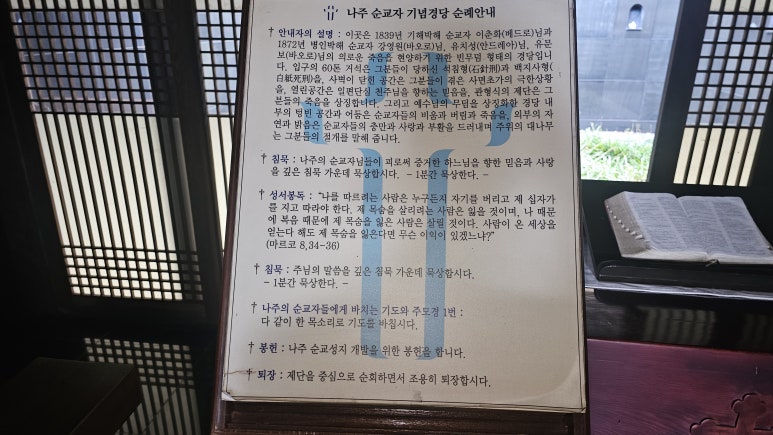 나주 순교자 기념경당 순례안내
† 안내자의 설명 : 이곳은 1839년 기해박해 순교자 이춘화(베드로)님과
1872년 병인박해 순교자 강영원(바오로)님, 유치성(안드레아)님, 유문
보(바오로)님의 의로운 죽음을 현양하기 위한 빈무덤 형태의 경당입니
다. 입구의 60톤 거석은 그분들이 당하신 석침형(石針刑)과 백지사형(
白紙死刑)을, 사벽이 닫힌 공간은 그분들이 겪은 사면초가의 극한상황
을, 열린공간은 일편단심 천주님을 향하는 믿음을, 관형식의 제단은 그
분들의 죽음을 상징합니다. 그리고 예수님의 무덤을 상징화한 경당 내
부의 텅빈 공간과 어둠은 순교자들의 비움과 버림과 죽음을, 외부의 자
연과 밝음은 순교자들의 충만과 사랑과 부활을 드러내며 주위의 대나무
는 그분들의 절개를 말해 줍니다.
† 침묵 : 나주의 순교자님들이 피로써 증거한 하느님을 향한 믿음과 사랑
을 깊은 침묵 가운데 묵상합시다. - 1분간 묵상한다. -
† 성서봉독 : “나를 따르려는 사람은 누구든지 자기를 버리고 제 십자가
를 지고 따라야 한다. 제 목숨을 살리려는 사람은 잃을 것이며, 나 때문
에 복음 때문에 제 목숨을 잃은 사람은 살릴 것이다. 사람이 온 세상을
얻는다 해도 제 목숨을 잃는다면 무슨 이익이 있겠느냐?”
(마르코 8,34-36)
† 침묵 : 주님의 말씀을 깊은 침묵 가운데 묵상합시다.
- 1분간 묵상한다. -
† 나주의 순교자들에게 바치는 기도와 주모경 1번 :
다 같이 한 목소리로 기도를 바칩시다.
† 봉헌 : 나주 순교성지 개발을 위한 봉헌을 합니다.
† 퇴장 : 제단을 중심으로 순회하면서 조용히 퇴장합시다.